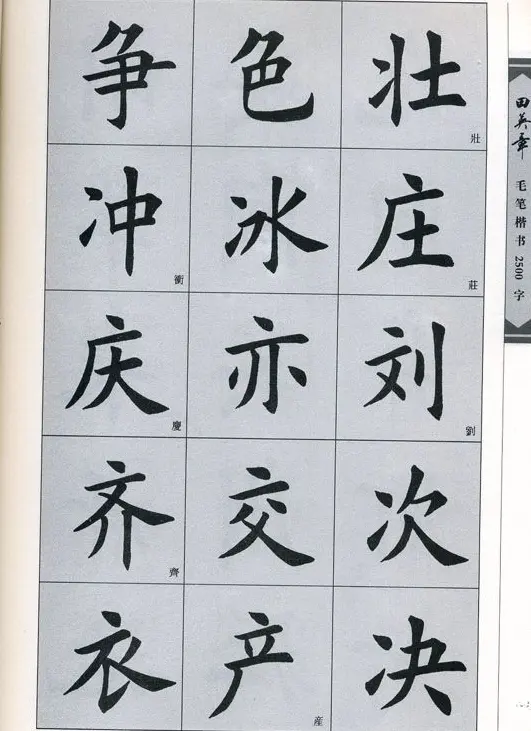 争 色 壮 壯
冲 衝 冰 庄 莊
庆 慶 亦 刘 劉
齐 齊 交 次
衣 产 産 决
田英章 毛笔楷书 2500 字